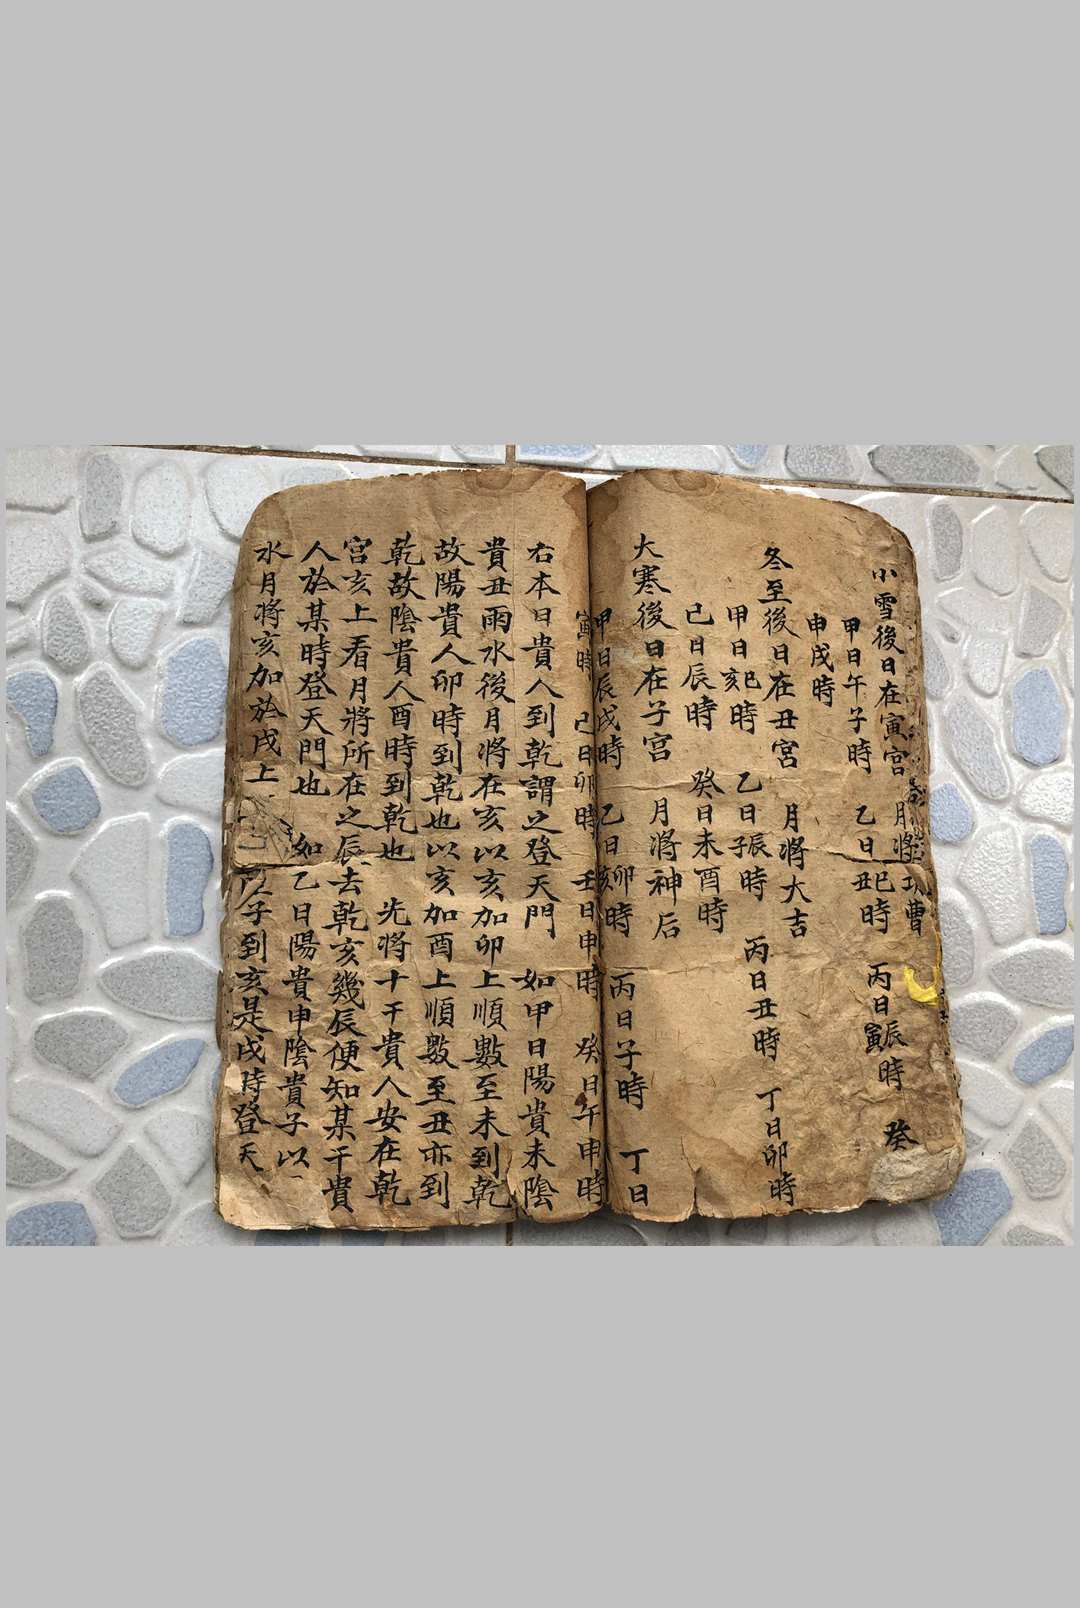 小雪後日在寅宮 月將功曹
甲日午子時 乙日巳丑時 丙日辰寅時 癸
申戌時
冬至後日在丑宮 月將大吉
甲日巳亥時 乙日辰子時 丙日丑時 丁日卯時
己日辰時 癸日未酉時
大寒後日在子宮 月將神后
甲日辰戌時 乙日卯亥時 丙日子時 丁日
寅時 己日卯時 壬日申時 癸日午申時
右本日貴人到乾謂之登天門 如甲日陽貴未陰
貴丑雨水後月將在亥以亥加卯上順數至未到乾
故陽貴人卯時到乾也以亥加酉上順數至丑亦到
乾故陰貴人酉時到乾也 先將十干貴人安在乾
宮亥上看月將所在之辰去乾亥幾辰便知某干貴
人於某時登天門也 如乙日陽貴申陰貴子以
水月將亥加於戌上 子到亥是戌時登天